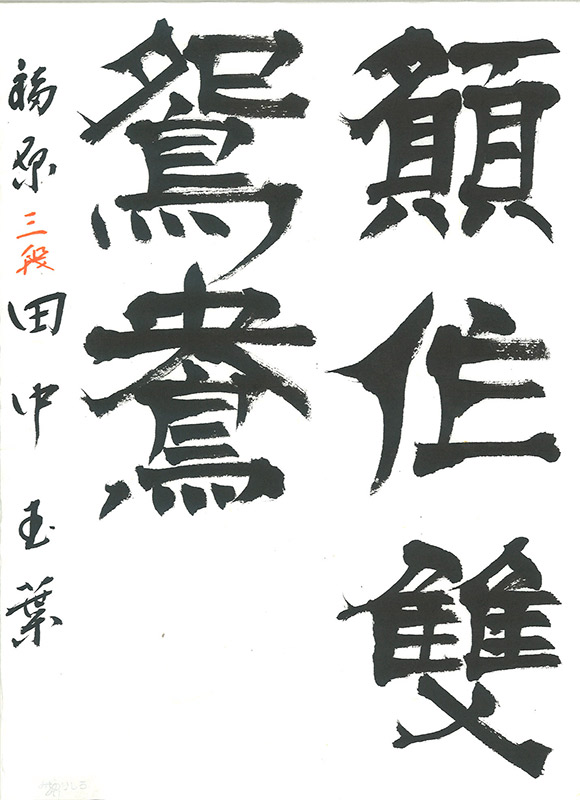 願作雙
鴛鴦
福原 三段 田中玉葉